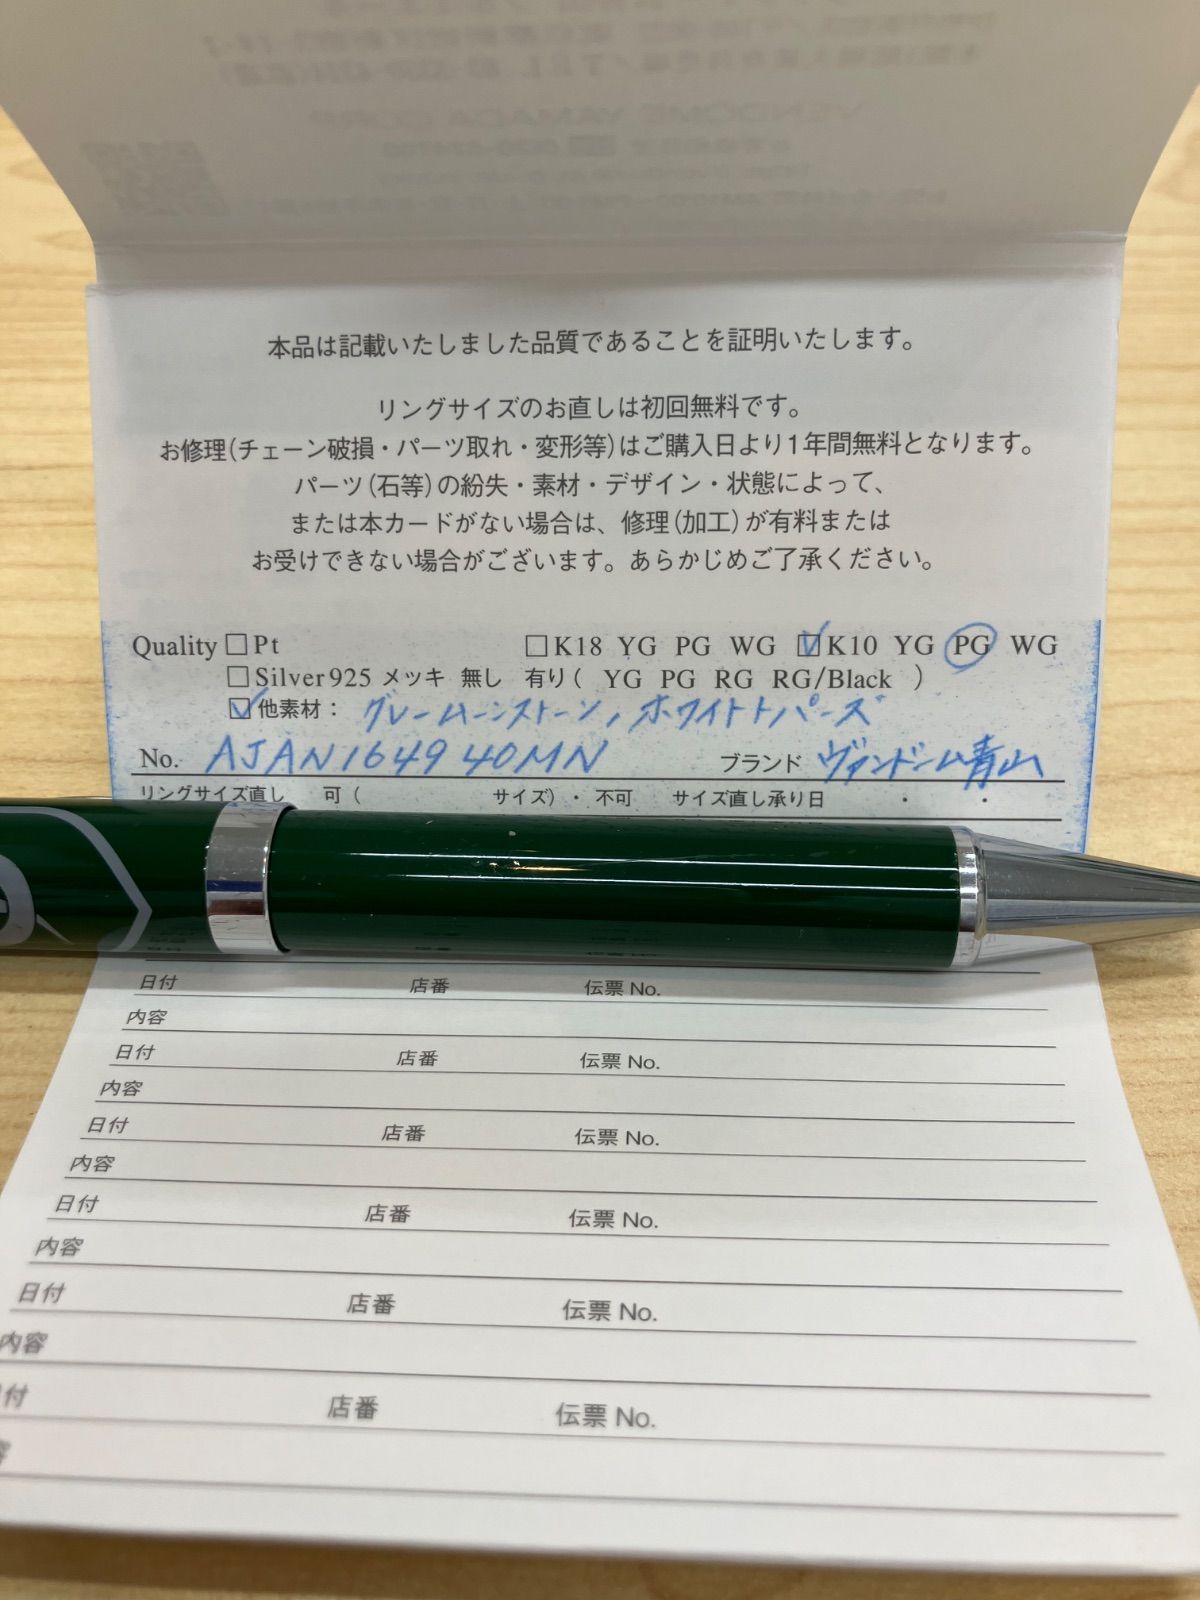 VENDOME YAMADA CORP
本品は記載いたしました品質であることを証明いたします。
リングサイズのお直しは初回無料です。
お修理(チェーン破損・パーツ取れ・変形等)はご購入日より1年間無料となります。
パーツ(石等)の紛失・素材・デザイン・状態によって、
または本カードがない場合は、修理(加工)が有料または
お受けできない場合がございます。あらかじめご了承ください。
Quality □Pt □K18 YG PG WG ☑K10 YG PG WG
□Silver925 メッキ 無し 有り( YG PG RG RG/Black )
☑他素材： グレームーンストーン, ホワイトトパーズ
No. AJAN164940MN ブランド ヴァンドーム青山
リングサイズ直し 可( サイズ)・不可 サイズ直し承り日 ・ ・
日付 店番 伝票No.
内容
日付 店番 伝票No.
内容
日付 店番 伝票No.
内容
日付 店番 伝票No.
内容
日付 店番 伝票No.
内容
付 店番 伝票No.